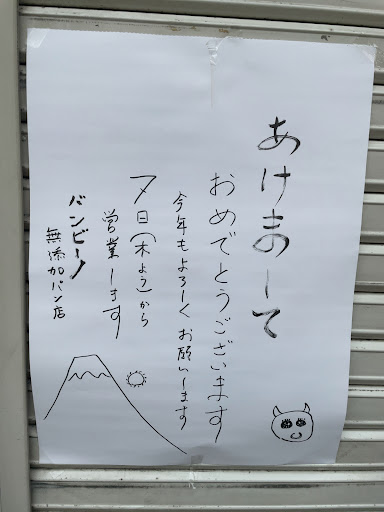 あけまして
おめでとうございます
今年もよろしくお願いします
7日(木よう)から
営業します
バンビーノ
無添加パン店